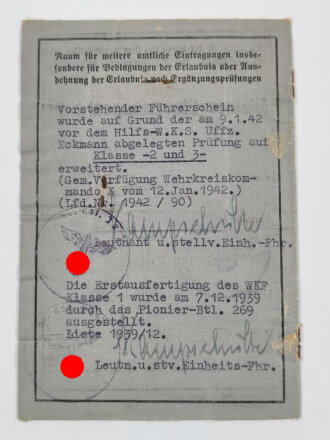 Raum für weitere amtliche Eintragungen insbe-
sondere für Bedingungen der Erlaubnis oder Aus-
dehnung der Erlaubnis nach Ergänzungsprüfungen
Vorstehender Führerschein
wurde auf Grund der am 9.1.42
vor dem Hilfs-W.K.S. Uffz.
Eckmann abgelegten Prüfung auf
Klasse -2 und 3-
erweitert.
(Gem.Verfügung Wehrkreiskom-
mando X vom 12.Jan.1942.)
(Lfd.Nr. 1942 / 90)
Leutnant u.stellv.Einh.-Fhr.
Die Erstausfertigung des WKF
Klasse 1 wurde am 7.12.1939
durch das Pionier-Btl. 269
ausgestellt.
Liste 1939/12.
Leutn.u.stv.Einheits-Fhr.